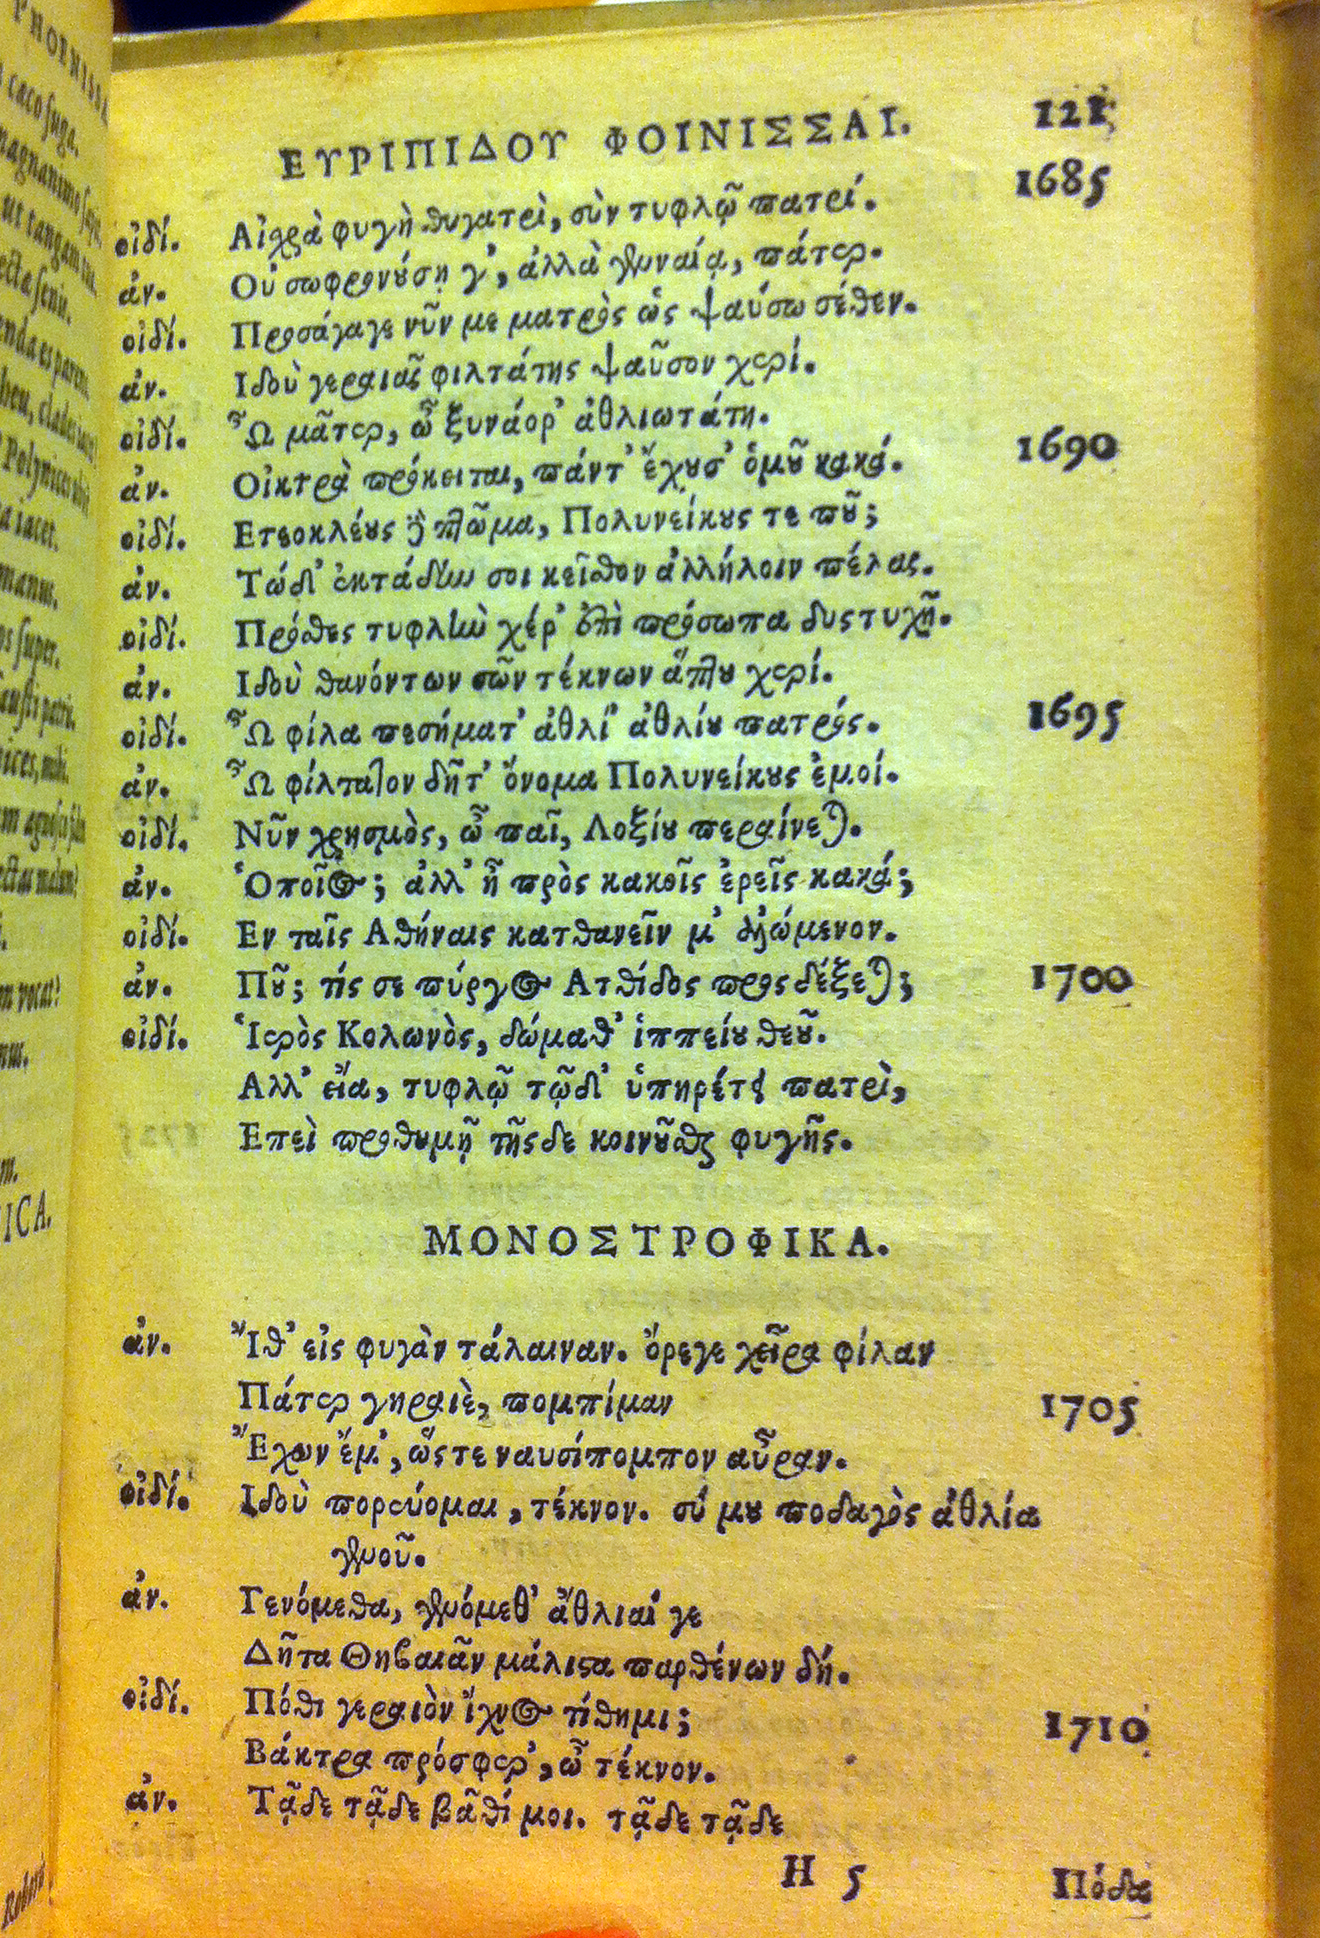 ΕΥΡΙΠΙΔΟΥ ΦΟΙΝΙΣΣΑΙ. 121
οἰδί. Αἰχρὰ φυγὴ θυγατρὶ, σὺν τυφλῷ πατρί. 1685
ἀν. Οὐ σωφρονούσῃ γ', ἀλλὰ γενναίᾳ, πάτερ.
οἰδί. Προσάγαγε νῦν με ματρὸς ὡς ψαύσω σέθεν.
ἀν. Ιδοὺ γεραιᾶς φιλτάτης ψαῦσον χερί.
οἰδί. Ὦ μᾶτερ, ὦ ξυνάορ' ἀθλιωτάτη.
ἀν. Οἰκτρὰ πρόκειται, πάντ' ἔχουσ' ὁμοῦ κακά. 1690
οἰδί. Ετεοκλέους δὲ πτῶμα, Πολυνείκους τε ποῦ;
ἀν. Τώδ' ἐκτάδην σοι κεῖσθον ἀλλήλοιν πέλας.
οἰδί. Πρόσθες τυφλὴν χέρ' ἐπὶ πρόσωπα δυστυχῆ.
ἀν. Ιδοὺ θανόντων σῶν τέκνων ἅπτου χερί.
οἰδί. Ὦ φίλα πεσήματ' ἀθλί' ἀθλίου πατρός. 1695
ἀν. Ὦ φίλτατον δῆτ' ὄνομα Πολυνείκους ἐμοί.
οἰδί. Νῦν χρησμὸς, ὦ παῖ, Λοξίου περαίνεται.
ἀν. Ὁποῖος; ἀλλ' ἦ πρὸς κακοῖς ἐρεῖς κακά;
οἰδί. Εν ταῖς Αθήναις κατθανεῖν μ' ἀλώμενον.
ἀν. Ποῦ; τίς σε πύργος Ατθίδος προσδέξεται; 1700
οἰδί. Ἱερὸς Κολωνὸς, δώμαθ' ἱππείου θεοῦ.
Αλλ' εἶα, τυφλῷ τῷδ' ὑπηρέτει πατρὶ,
Επεὶ προθυμῇ τῆςδε κοινοῦσθαι φυγῆς.
ΜΟΝΟΣΤΡΟΦΙΚΑ.
ἀν. Ἴθ' εἰς φυγὰν τάλαιναν. ὄρεγε χεῖρα φίλαν
Πάτερ γηραιὲ, πομπίμαν 1705
Ἔχων ἔμ', ὥςτε ναυσίπομπον αὖραν.
οἰδί. Ιδοὺ πορεύομαι, τέκνον. σύ μου ποδαγὸς ἀθλία
γενοῦ.
ἀν. Γενόμεθα, γενόμεθ' ἄθλιαί γε
Δῆτα Θηβαιᾶν μάλιστα παρθένων δή.
οἰδί. Πόθι γεραιὸν ἴχνος τίθημι; 1710
Βάκτρα πρόσφερ', ὦ τέκνον.
ἀν. Τᾷδε τᾷδε βᾶθί μοι. τᾷδε τᾷδε
H 5 Πόδα